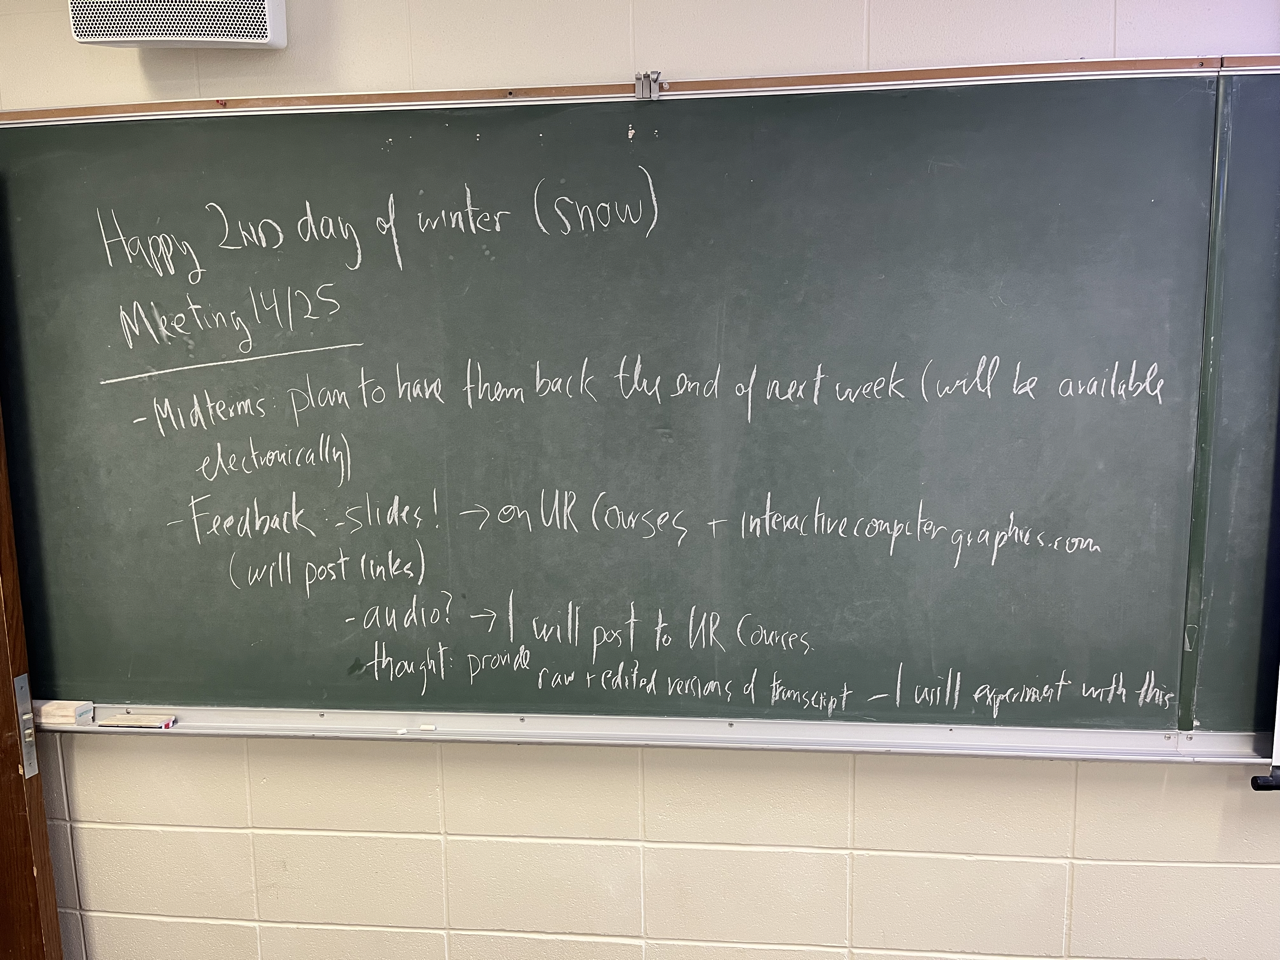 Happy 2ND day of winter (snow)
Meeting 14/25
- Midterms: plan to have them back the end of next week (will be available
electronically)
- Feedback: - slides! → on UR Courses + interactivecomputergraphics.com
(will post links)
- audio? → I will post to UR Courses.
thought: provide raw + edited versions of transcript - I will experiment with this